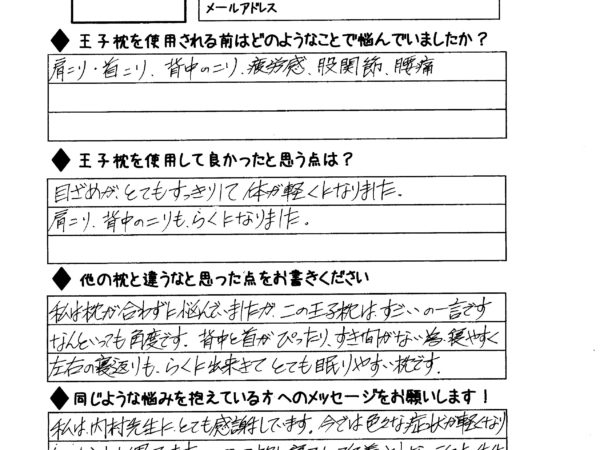 メールアドレス
◆ 王子枕を使用される前はどのようなことで悩んでいましたか？
肩こり・首こり、背中のこり、疲労感、股関節、腰痛
◆ 王子枕を使用して良かったと思う点は？
目ざめが、とてもすっきりして体が軽くなりました。
肩こり、背中のこりも、らくになりました。
◆ 他の枕と違うなと思った点をお書きください
私は枕が合わずに悩んでいましたが、この王子枕は、すごいの一言です
なんといっても角度です。背中と首がぴったり、すき間がない為、寝やすく
左右の寝返りも、らくに出来きてとても眠りやすい枕です。
◆ 同じような悩みを抱えている方へのメッセージをお願いします！
私は、内村先生に、とても感謝しています。今では色々な症状が軽くなり